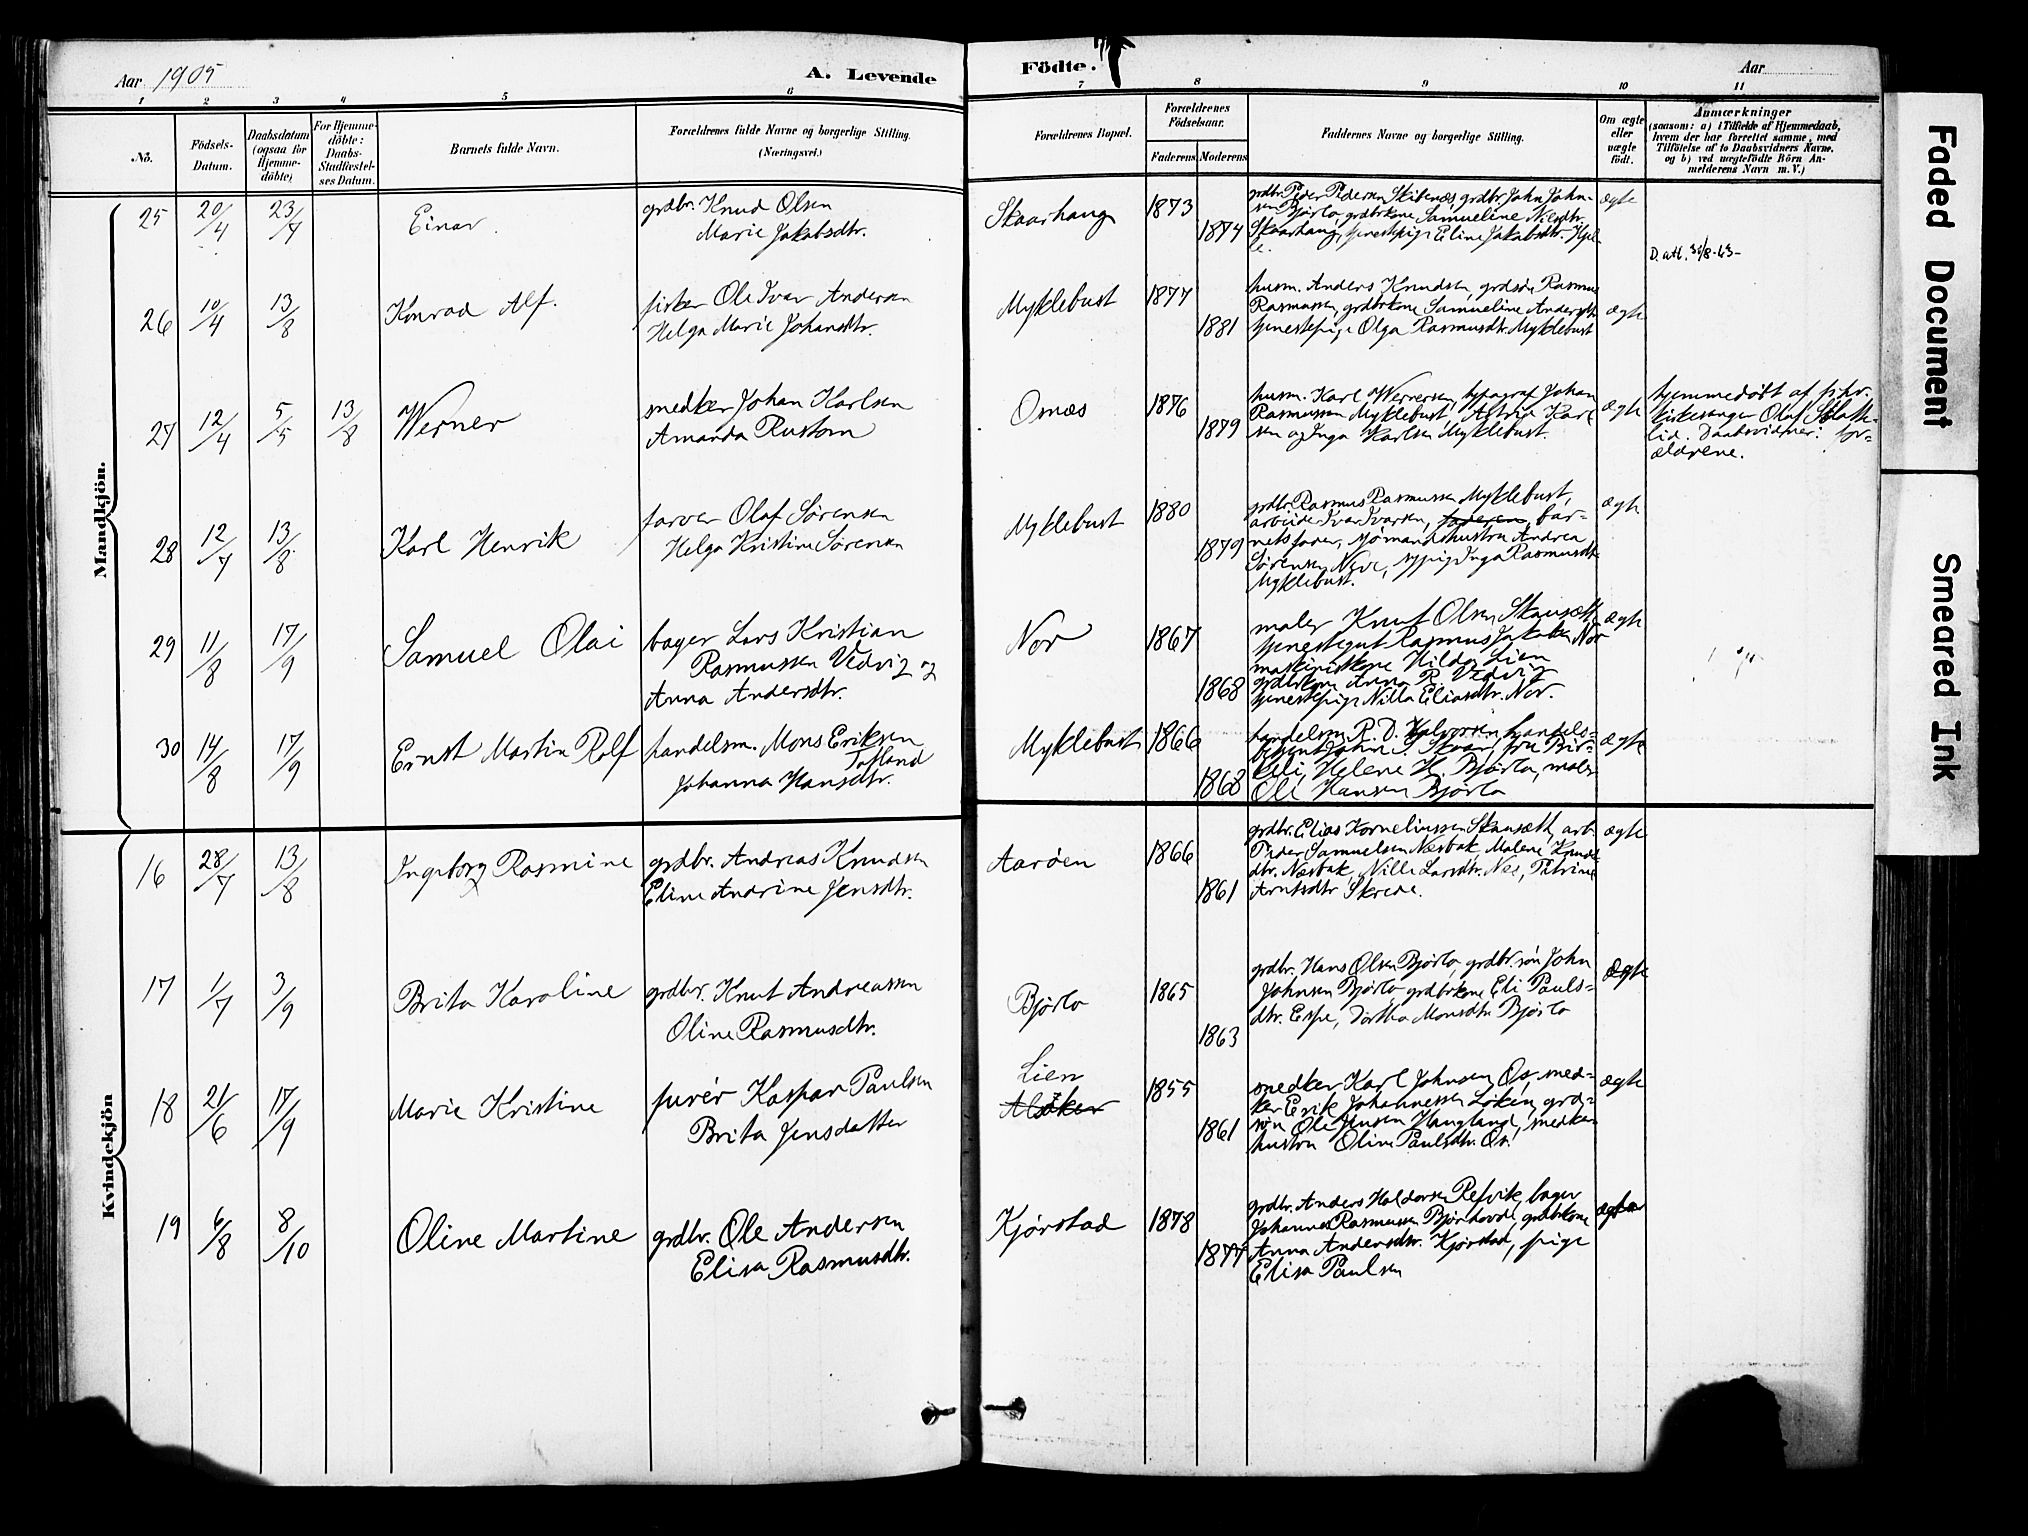 Aar 1905
A. Levende
Födte.
Aar
1 2 3 4 5 6 7 8 9 10 11
No.
Födsels-
Datum.
Daabsdatum
(ogsaa for
Hjemme-
döbte)
For Hjemme-
döbte:
Daabs-
Stadfæstel-
ses Datum.
Barnets fulde Navn.
Forældrenes fulde Navne og borgerlige Stilling.
(Næringsvei.)
Forældrenes Bopæl.
Forældrenes
Födselsaar.
Faderens
Moderens
Faddernes Navne og borgerlige Stilling.
Om ægte
eller
uægte
födt.
Anmærkninger
(saasom: a) i Tilfælde af Hjemmedaab,
hvem der har forrettet samme, med
Tilföielse af to Daabsvidners Navne.
og b) ved uægtefödte Börn An-
melderens Navn m. V.)
Mandkjön.
25 20/4 23/7 Einar.
grdbr. Knud Olsen
Marie Jakobsdtr.
Skaarhaug 1873
1874
grdbr. Peder Pedersen Skibenes, grdbr. John John-
sen Bjørlo, grdbrkone Samueline
Skaarhaug, tjenestepige Eline Jakobsdtr.
ægte
D. atl. 30/8-63-
26 10/4 13/8 Konrad Alf.
fisker Ole Ivar Andersen
Helga Marie Johansdtr.
Myklebust 1877
1881
husm. Anders Knudsen, grdsøn Rasmus
Rasmussen, grdbrkone Samueline Andersdtr.
tjenestepige Olga Rasmusdtr. Myklebust
ægte
27 12/4 5/5 13/8 Werner
snedker Johan Karlsen
Amanda Rustøen
Osnæs 1876
1879
husm. Karl Wernersen, typograf Johan
Rasmussen Myklebust, Astrid Karl
sen og Inga Karlsen Myklebust.
ægte
hjemmedøbt af
kirkesanger Olaf
lid. Daabsvidner: for-
ældrene.
28 12/7 13/8 Karl Henrik
farver Olaf Sørensen
Helga Kristine Sørensen
Myklebust 1880
1879
grdbr. Rasmus Rasmussen Myklebust,
arbeider Ivar Ivarsen, faderen, bar-
nets fader, sjømandshustru Andrea
Sørensen Neve, sypige Inga Rasmusdtr
Myklebust.
ægte
29 11/8 17/9 Samuel Olai
bager Lars Kristian
Rasmussen Vedvig og
Anna Andersdtr.
Nor 1867
1868
maler Knut Olsen Skausæth,
tjenestegut Rasmus Jakobsen Nor
maskinistkone Hilda Lien
grdbrkone Anna R. Vedvig
tjenestepige Nilla Eliasdtr. Nor.
ægte
30 14/8 17/9 Ernst Martin Rolf
handelsm. Mons Eriksen
Tofland
Johanna Hansdtr.
Myklebust 1866
1868
handelsm. R. D. Halvorsen, handels-
betjent John S. fru Bir-
keli, Helene H. Bjørlo, maler
Ole Hansen Bjørlo
ægte
Kvindekjön
16 28/7 13/8 Ingeborg Rasmine
grdbr. Andreas Knudsen
Eline Andrine Jensdtr.
Aarøen 1866
1861
grdbr. Elias Korneliussen Skausæth, arb.
Peder Samuelsen Næsbak, Malene Knuds
dtr. Næsbak, Nille Larsdtr. Nes, Petrine
Arntsdtr Skrede.
ægte
17 1/7 3/9 Brita Karoline
grdbr. Knut Andreassen
Oline Rasmusdtr.
Bjørlo 1865
1863
grdbr. Hans Olsen Bjørlo, grdbr. søn John
Johnsen Bjørlo, grdbrkone Eli Pauls-
dtr. Espe, Dorthea Monsdtr. Bjørlo
ægte
18 21/6 17/9 Marie Kristine
furér Kaspar Paulsen
Brita Jensdatter
Lien
Alsaker
1855
1861
snedker Karl Johnsen Os, sned-
ker Erik Johannessen Løken, grd-
søn Ole Jensen Haugland, snedker
hustru Oline Paulsdtr. Os.
ægte
19 6/8 8/10 Oline Martine
grdbr. Ole Andersen
Elisa Rasmusdtr.
Kjørstad 1878
1877
grdbr. Anders Haldorsen Refvik, bager
Johannes Rasmussen Bjørhovde, grdbrkone
Anna Andersdtr. Kjørstad, pige
Elisa Paulsen
ægte
Faded Document
Smeared Ink